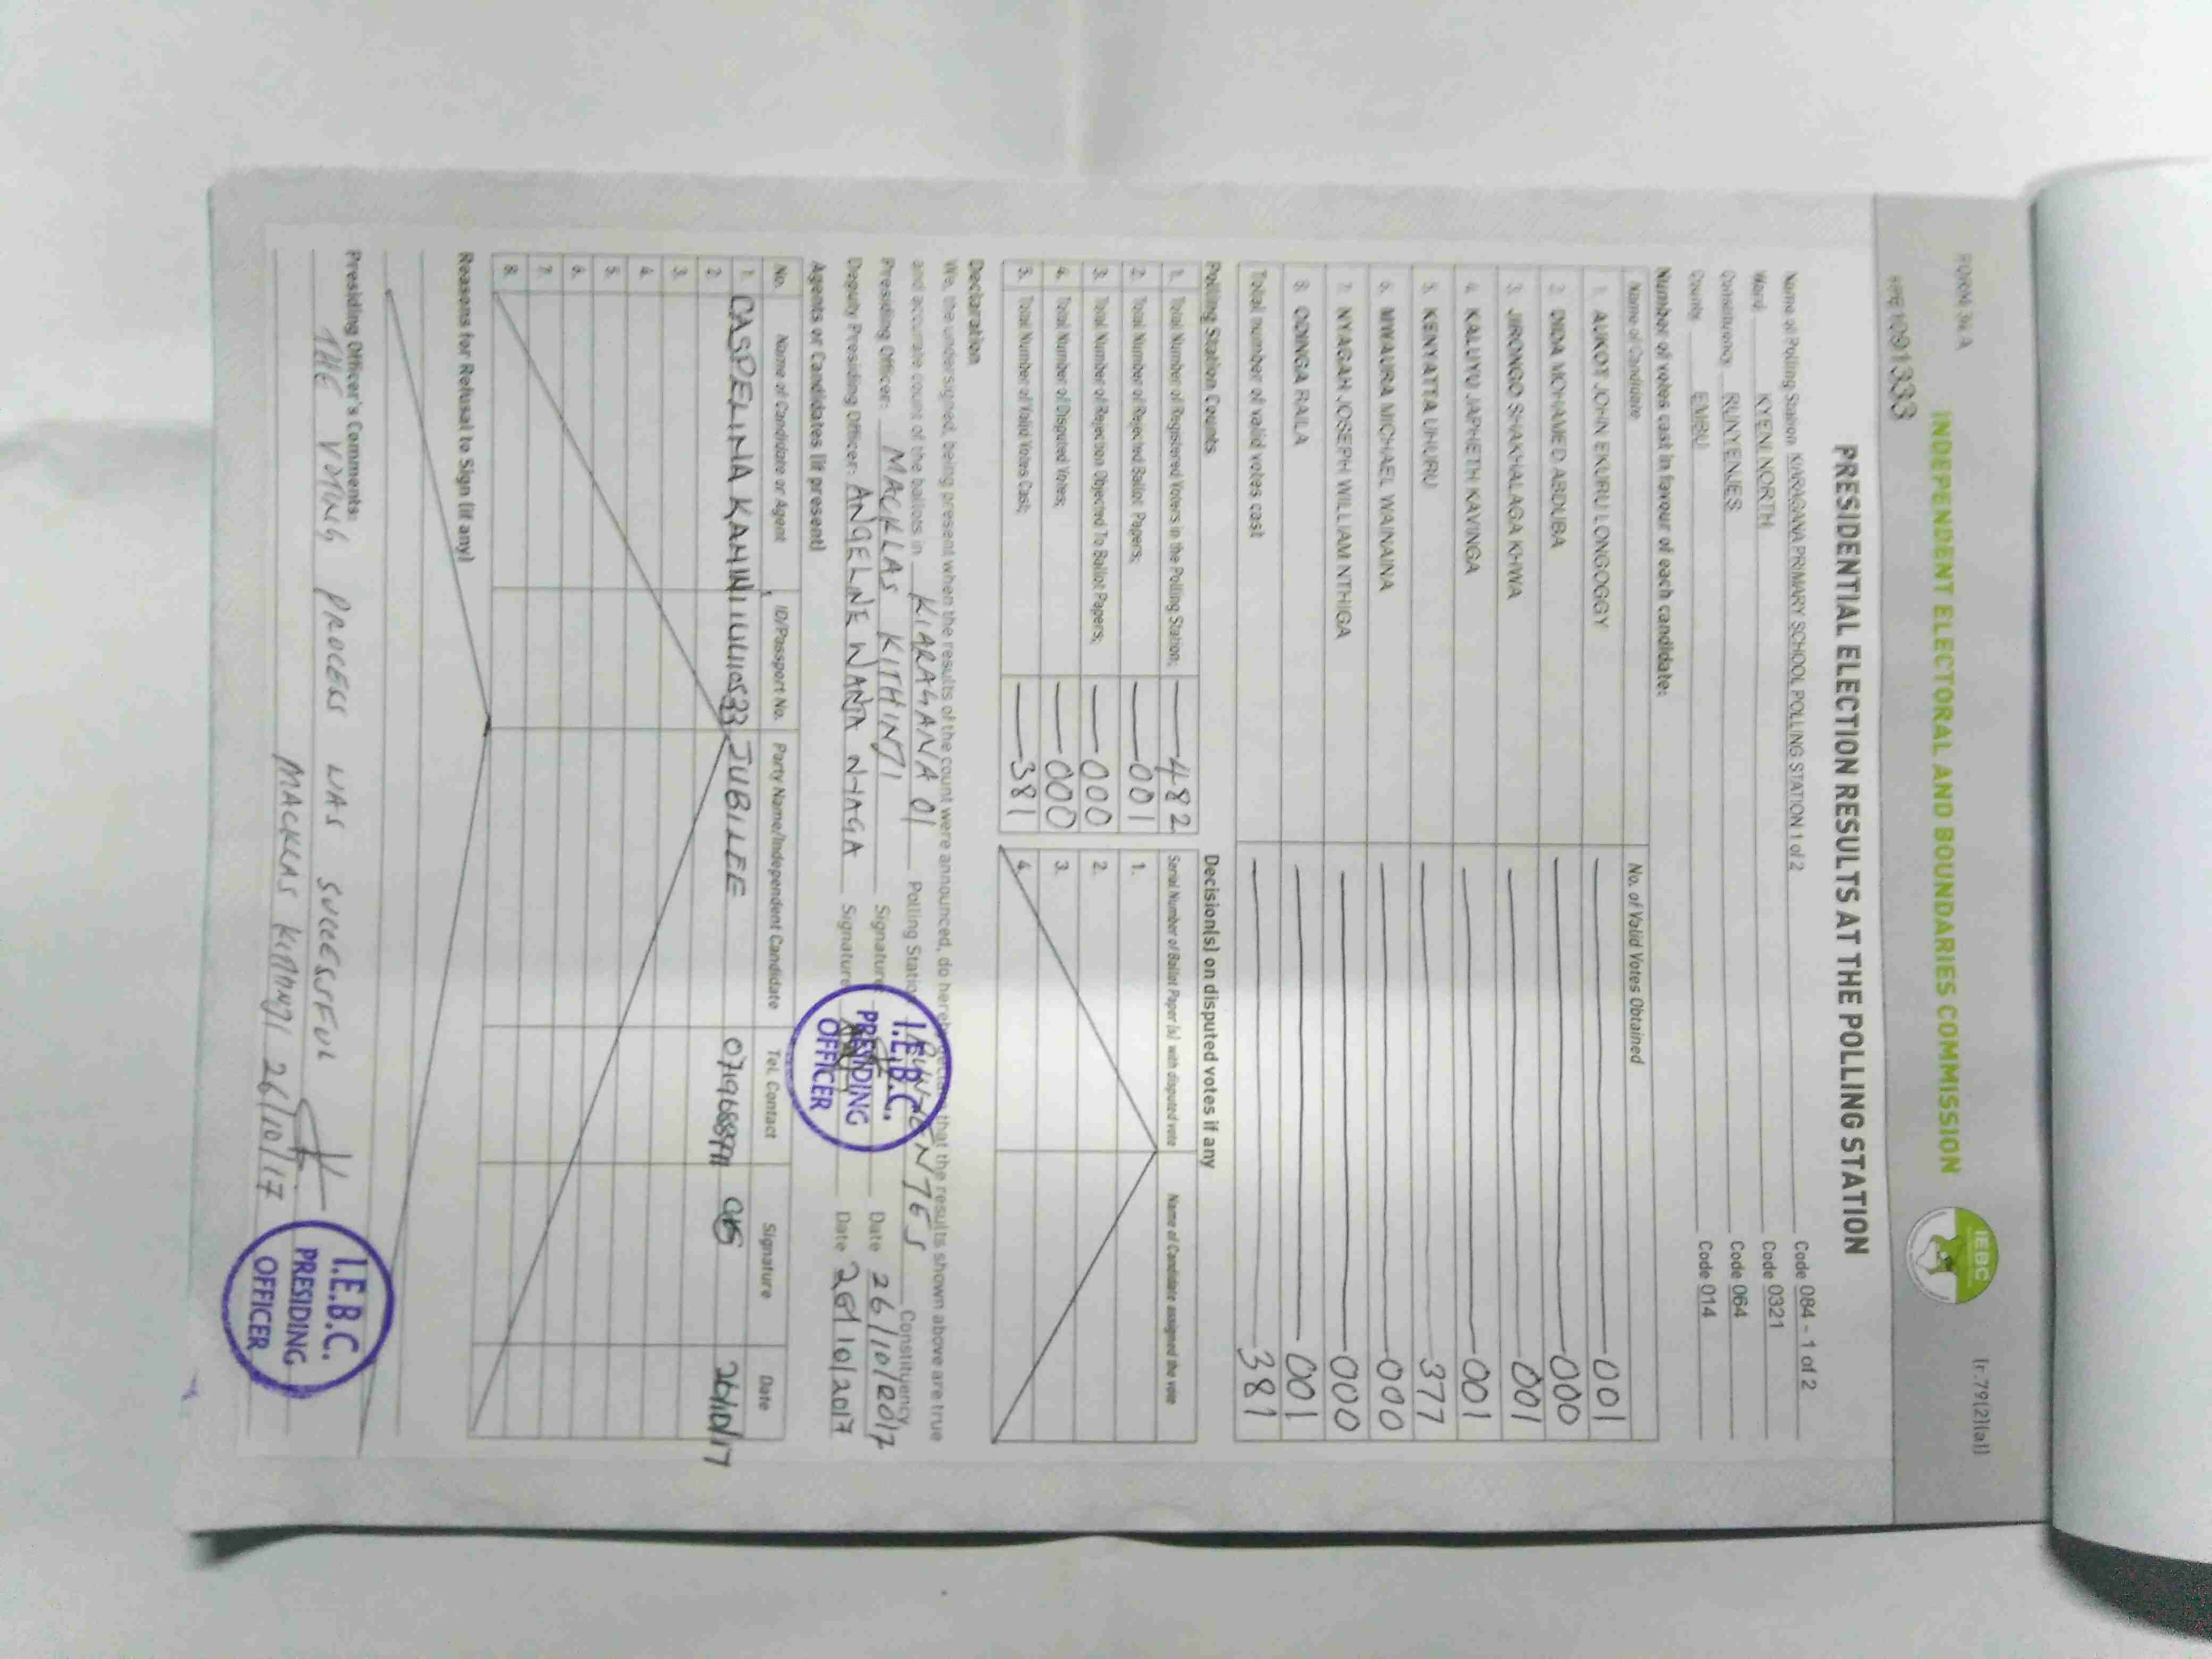 FORM 34 A
[r.79(2)(a)]
INDEPENDENT ELECTORAL AND BOUNDARIES COMMISSION
IEBC
1091333
PRESIDENTIAL ELECTION RESULTS AT THE POLLING STATION
Name of Polling Station KIARAGANA PRIMARY SCHOOL POLLING STATION 1 of 2 Code 084 - 1 of 2
Ward KYENI NORTH Code 0321
Constituency RUNYENJES Code 064
County EMBU Code 014
Number of votes cast in favour of each candidate:
Name of Candidate No. of Valid Votes Obtained
1. AUKOT JOHN EKURU LONGOGGY 001
2. DIDA MOHAMED ABDUBA 000
3. JIRONGO SHAKHALAGA KHWA 001
4. KALUYU JAPHETH KAVINGA 001
5. KENYATTA UHURU 377
6. MWAURA MICHAEL WAINAINA 000
7. NYAGAH JOSEPH WILLIAM NTHIGA 000
8. ODINGA RAILA 001
Total number of valid votes cast 381
Polling Station Counts
1. Total Number of Registered Voters in the Polling Station; 482
2. Total Number of Rejected Ballot Papers; 001
3. Total Number of Rejection Objected To Ballot Papers; 000
4. Total Number of Disputed Votes; 000
5. Total Number of Valid Votes Cast; 381
Decision(s) on disputed votes if any
Serial Number of Ballot Paper (s) with disputed vote Name of Candidate assigned the vote
1.
2.
3.
4.
Declaration
We, the undersigned, being present when the results of the count were announced, do hereby declare that the results shown above are true
and accurate count of the ballots in KIARAGANA 01 Polling Station RUNYENJES Constituency
Presiding Officer: MACKLAS KITHINJI Signature Date 26/10/2017
Deputy Presiding Officer: ANGELINE WANJA Signature Date 26/10/2017
I.E.B.C.
PRESIDING
OFFICER
Agents or Candidates (if present)
No. Name of Candidate or Agent ID/Passport No. Party Name/Independent Candidate Tel. Contact Signature Date
1. CASPELINA JUBILEE 26/10/17
2.
3.
4.
5.
6.
7.
8.
Reasons for Refusal to Sign (if any)
Presiding Officer's Comments:
THE VOTING PROCESS WAS SUCCESSFUL
MACKLAS 26/10/17
I.E.B.C.
PRESIDING
OFFICER